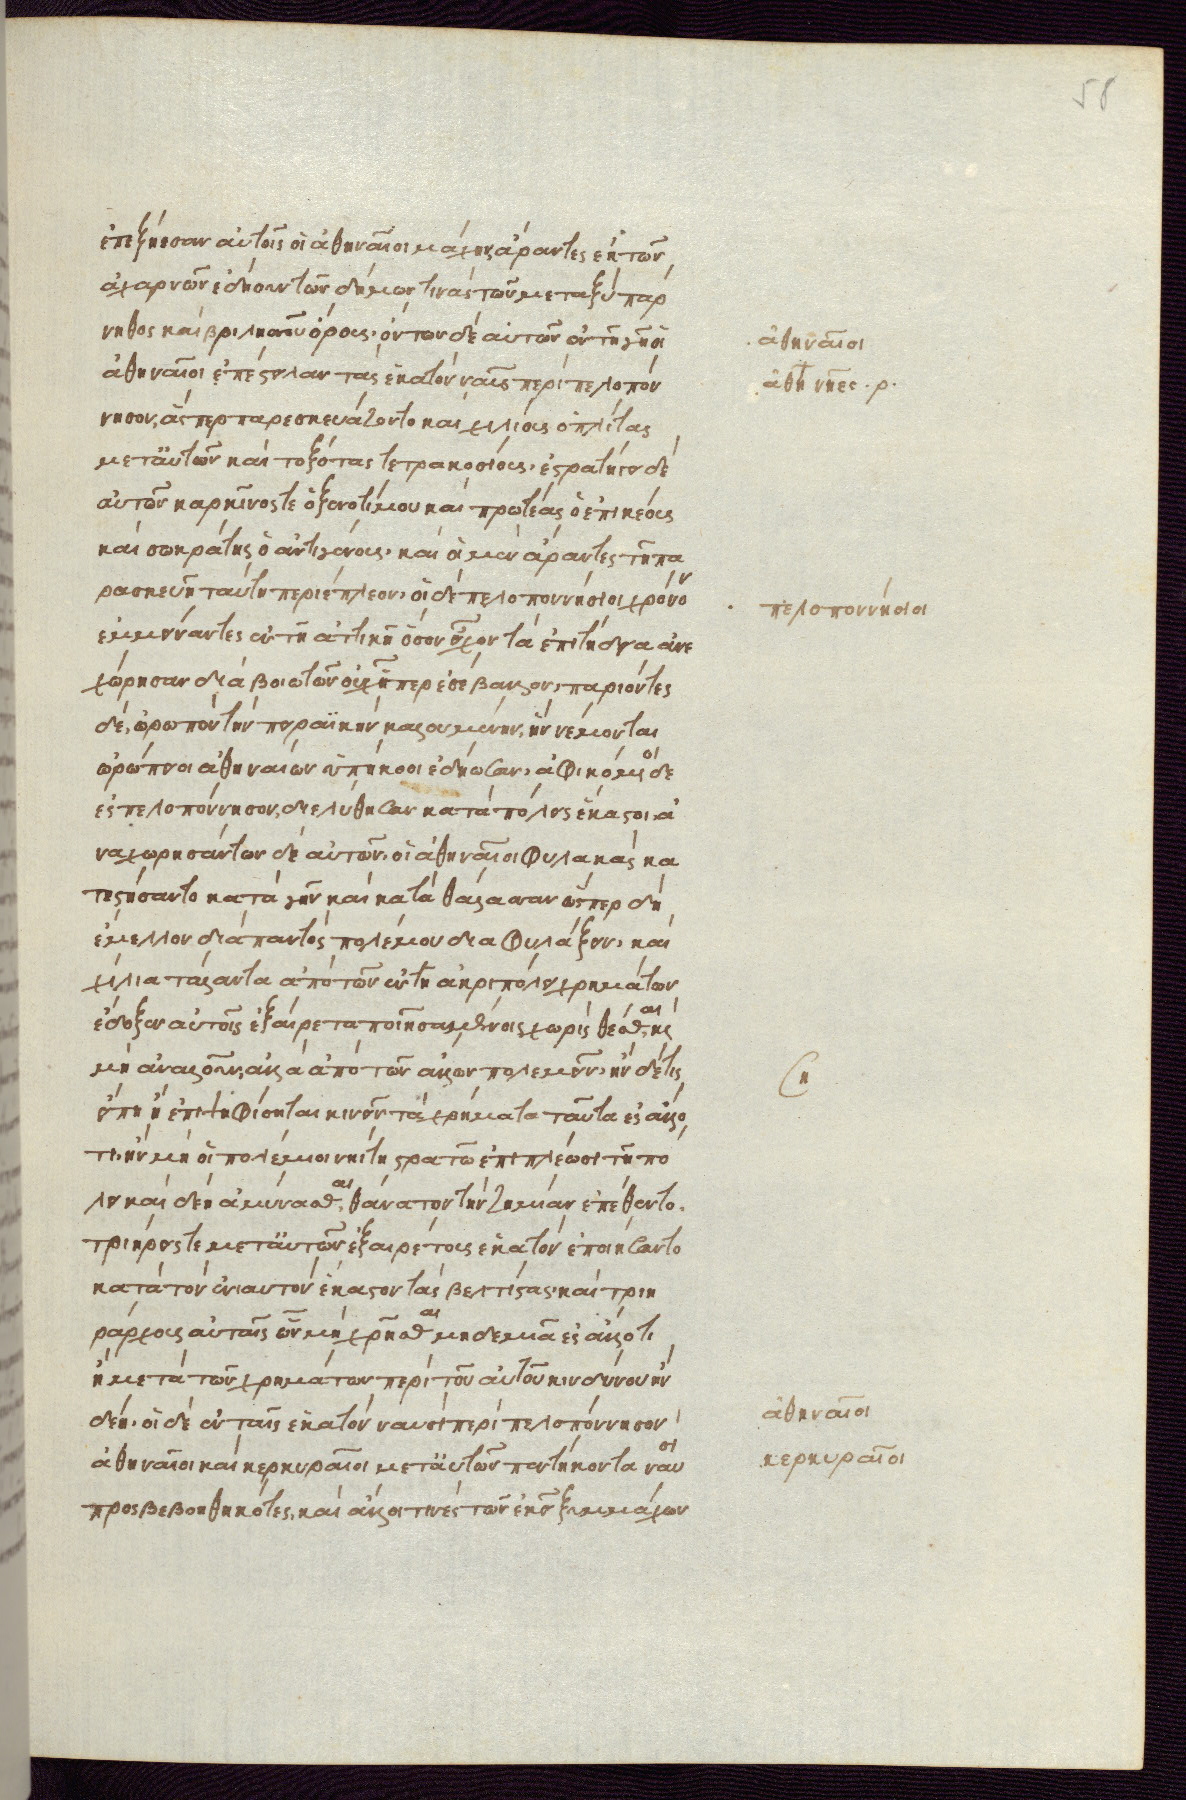 58
ἐπεξῄεσαν αὐτοῖς οἱ ἀθηναῖοι μάχης ἄραντες ἐκ τῶν
ἀχαρνῶν ἐδῄουν τῶν δήμων τινὰς τῶν μεταξὺ πάρ
νηθος καὶ βριλησσοῦ ὄρους· ὄντων δὲ αὐτῶν ἐν τῇ γῇ οἱ
ἀθηναῖοι
ἀθηναῖοι ἐπέστειλαν τὰς ἑκατὸν ναῦς περὶ πελοπόν
ἀθη νῆες .ρ.
νησον, ἅσπερ παρεσκευάζοντο καὶ χιλίους ὁπλίτας
μετ' αὐτῶν καὶ τοξότας τετρακοσίους, ἐστρατήγει δὲ
αὐτῶν καρκῖνος τε ὁ ξενοτίμου καὶ πρωτέας ὁ ἐπικλέους
καὶ σωκράτης ὁ ἀντιγόνους· καὶ οἱ μὲν ἄραντες τῇ πα
ρασκευῇ ταύτῃ περιέπλεον, οἱ δὲ πελοποννήσιοι χρόνον
πελοποννήσιοι
ἐμμείναντες ἐν τῇ ἀττικῇ ὅσον εἶχον τὰ ἐπιτήδεια ἀνε
χώρησαν διὰ βοιωτῶν οὐχ ᾗπερ ἐσέβαλλον, παριόντες
δὲ, ὠρωπὸν τὴν πειραϊκὴν καλουμένην, ἣν νέμονται
ὠρώπιοι ἀθηναίων ὑπήκοοι ἐδῄωσαν, ἀφικόμενοι δὲ
ἐς πελοπόννησον, διελύθησαν κατὰ πόλεις ἕκαστοι· ἀ
ναχωρησάντων δὲ αὐτῶν, οἱ ἀθηναῖοι φυλακὰς κα
τεστήσαντο κατὰ γῆν καὶ κατὰ θάλασσαν ὥσπερ δὴ
ἔμελλον διὰ παντὸς πολέμου διαφυλάξειν, καὶ
χίλια τάλαντα ἀπὸ τῶν ἐν τῇ ἀκροπόλει χρημάτων
ἔδοξεν αὐτοῖς ἐξαίρετα ποιησαμένοις χωρὶς θέσθαι, καὶ
μὴ ἀναλοῦν, ἀλλὰ ἀπὸ τῶν ἄλλων πολεμεῖν· ἢν δέ τις
ση
εἴπῃ ἢ ἐπιψηφίσηται κινεῖν τὰ χρήματα ταῦτα ἐς ἄλλο
τι, ἢν μὴ οἱ πολέμιοι νηίτῃ στρατῷ ἐπιπλέωσι τῇ πό
λει καὶ δέῃ ἀμύνασθαι, θάνατον τὴν ζημίαν ἐπέθεντο.
τριήρεις τε μετ' αὐτῶν ἐξαιρέτους ἑκατὸν ἐποιήσαντο
κατὰ τὸν ἐνιαυτὸν ἕκαστον τὰς βελτίστας, καὶ τριη
ράρχους αὐταῖς ὧν μὴ χρῆσθαι μηδεμιᾷ ἐς ἄλλο τι,
ἢ μετὰ τῶν χρημάτων περὶ τοῦ αὐτοῦ κινδύνου ἢν
δέῃ. οἱ δὲ ἐν ταῖς ἑκατὸν ναυσὶ περὶ πελοπόννησον
ἀθηναῖοι
ἀθηναῖοι καὶ κερκυραῖοι μετ' αὐτῶν πεντήκοντα ναυσὶ
κερκυραῖοι
προσβεβοηθηκότες, καὶ ἄλλοι τινὲς τῶν ἐκεῖ ξυμμάχων